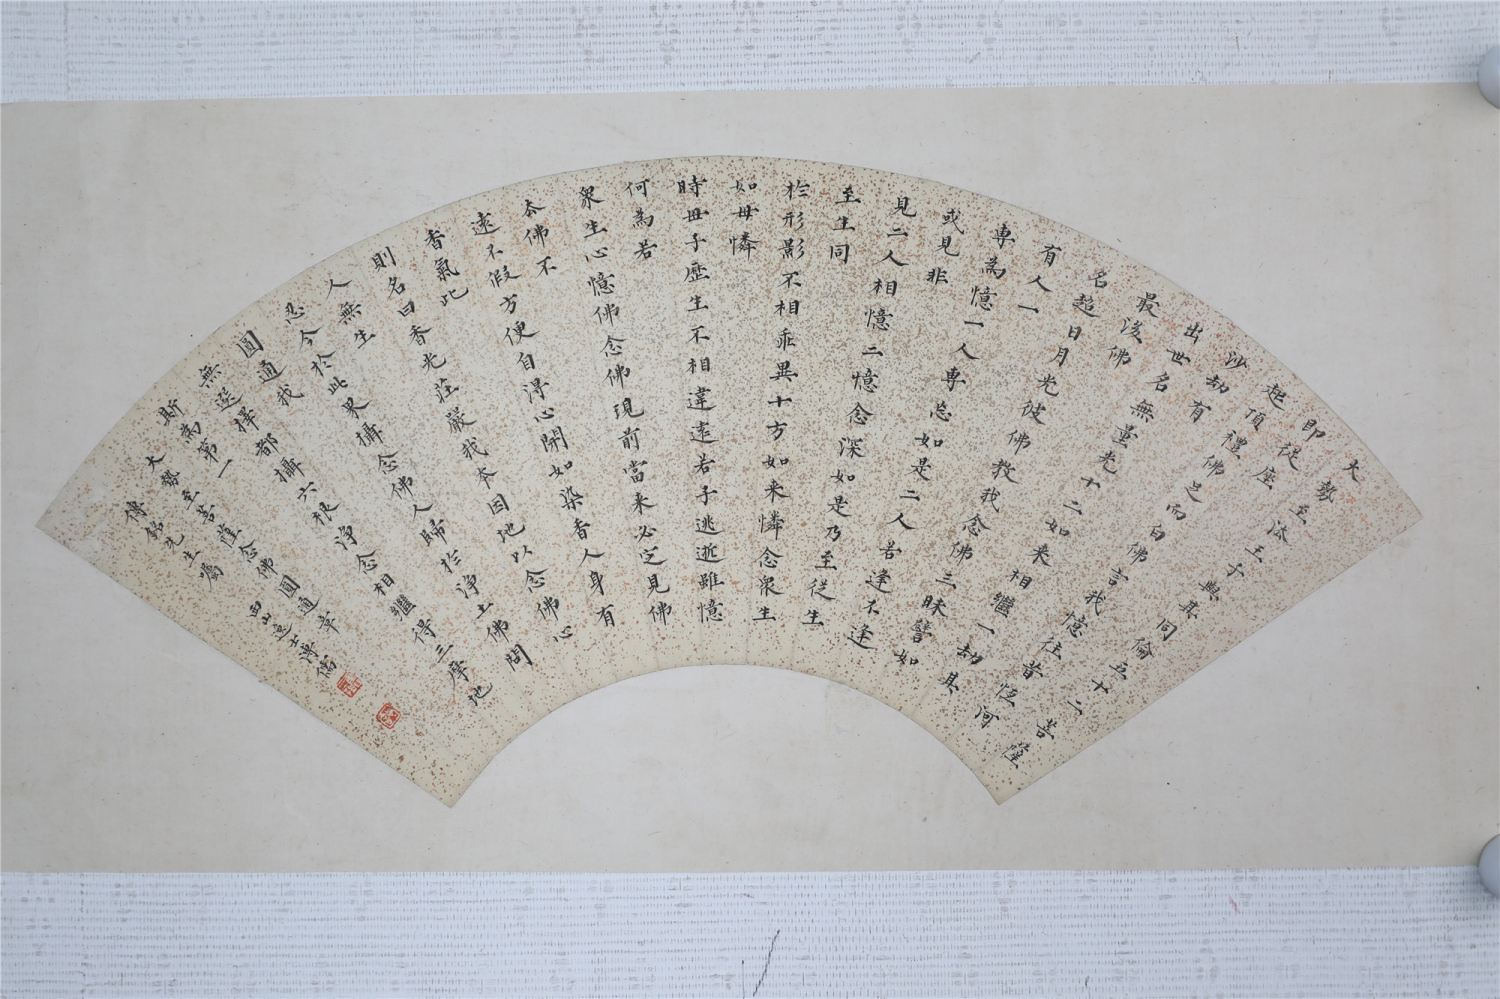 大勢至法王子與其同倫五十二菩薩
即從座
起頂禮佛足而白佛言我憶往昔恆河
沙劫有
出世名無量光十二如来相繼一劫其
最後佛
名超日月光彼佛教我念佛三昧譬如
有人一
專為憶一人專忘如是二人若逢不逢
或見非
見二人相憶二憶念深如是乃至從生
至生同
於形影不相乖異十方如来憐念衆生
如母憐
時母子歷生不相違遠若子逃逝雖憶
何為若
衆生心憶佛念佛現前當来必定見佛
去佛不
遠不假方便自得心開如染香人身有
香氣此
則名曰香光莊嚴我本因地以念佛心
人無生
忍今於此界攝念佛人歸於淨土佛問
圓通我
無選擇都攝六根淨念相繼得三摩地
斯為第一
大勢至菩薩念佛圓通章
傳銘先生屬 西山逸士溥儒